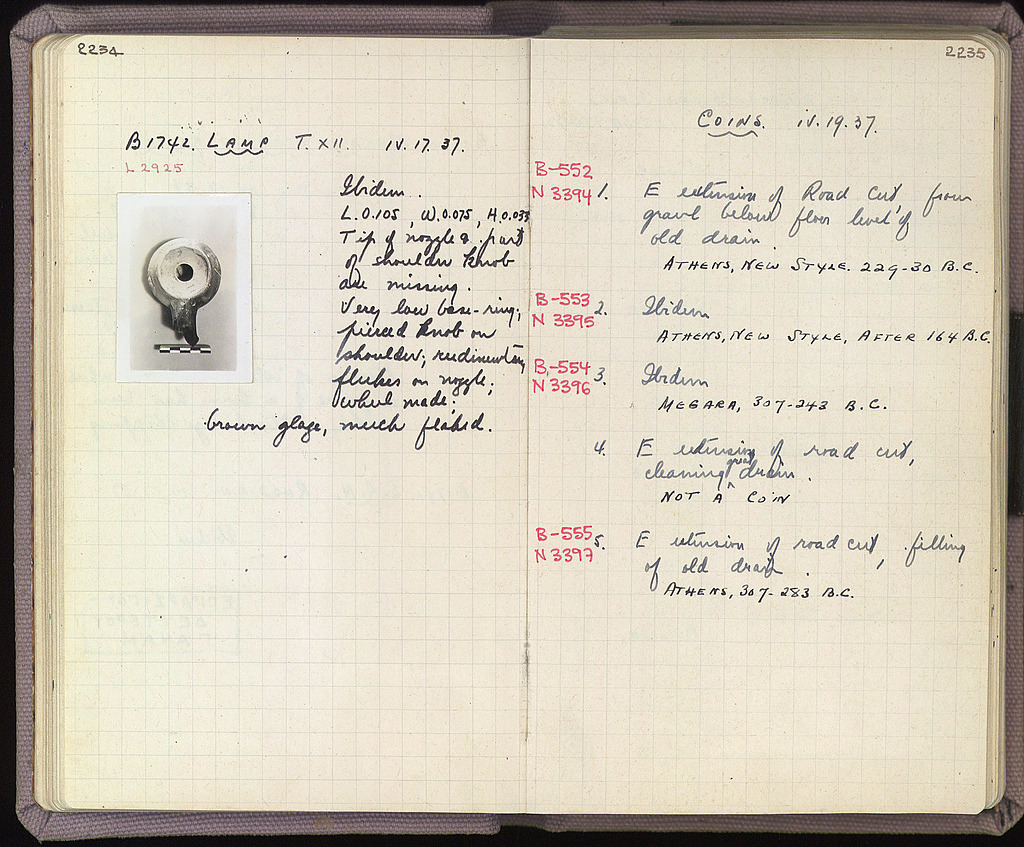 2234
B1742. LAMP T. XII. IV. 17. 37.
L 2925
Ibidem.
L. 0.105, W. 0.075, H. 0.033
Tip of nozzle & part
of shoulder knob
are missing.
Very low base-ring;
pierced knob on
shoulder; rudimentary
flukes on nozzle;
wheel made;
brown glaze, much flaked.
2235
COINS. IV. 19. 37.
B-552
N 3394 1. E extension of Road Cut, from
gravel below floor level of
old drain.
ATHENS, NEW STYLE. 229-30 B.C.
B-553
N 3395 2. Ibidem
ATHENS, NEW STYLE, AFTER 164 B.C.
B-554
N 3396 3. Ibidem
MEGARA, 307-243 B.C.
4. E extension of road cut,
cleaning great drain.
NOT A COIN
B-555
N 3397 5. E extension of road cut, filling
of old drain.
ATHENS, 307-283 B.C.